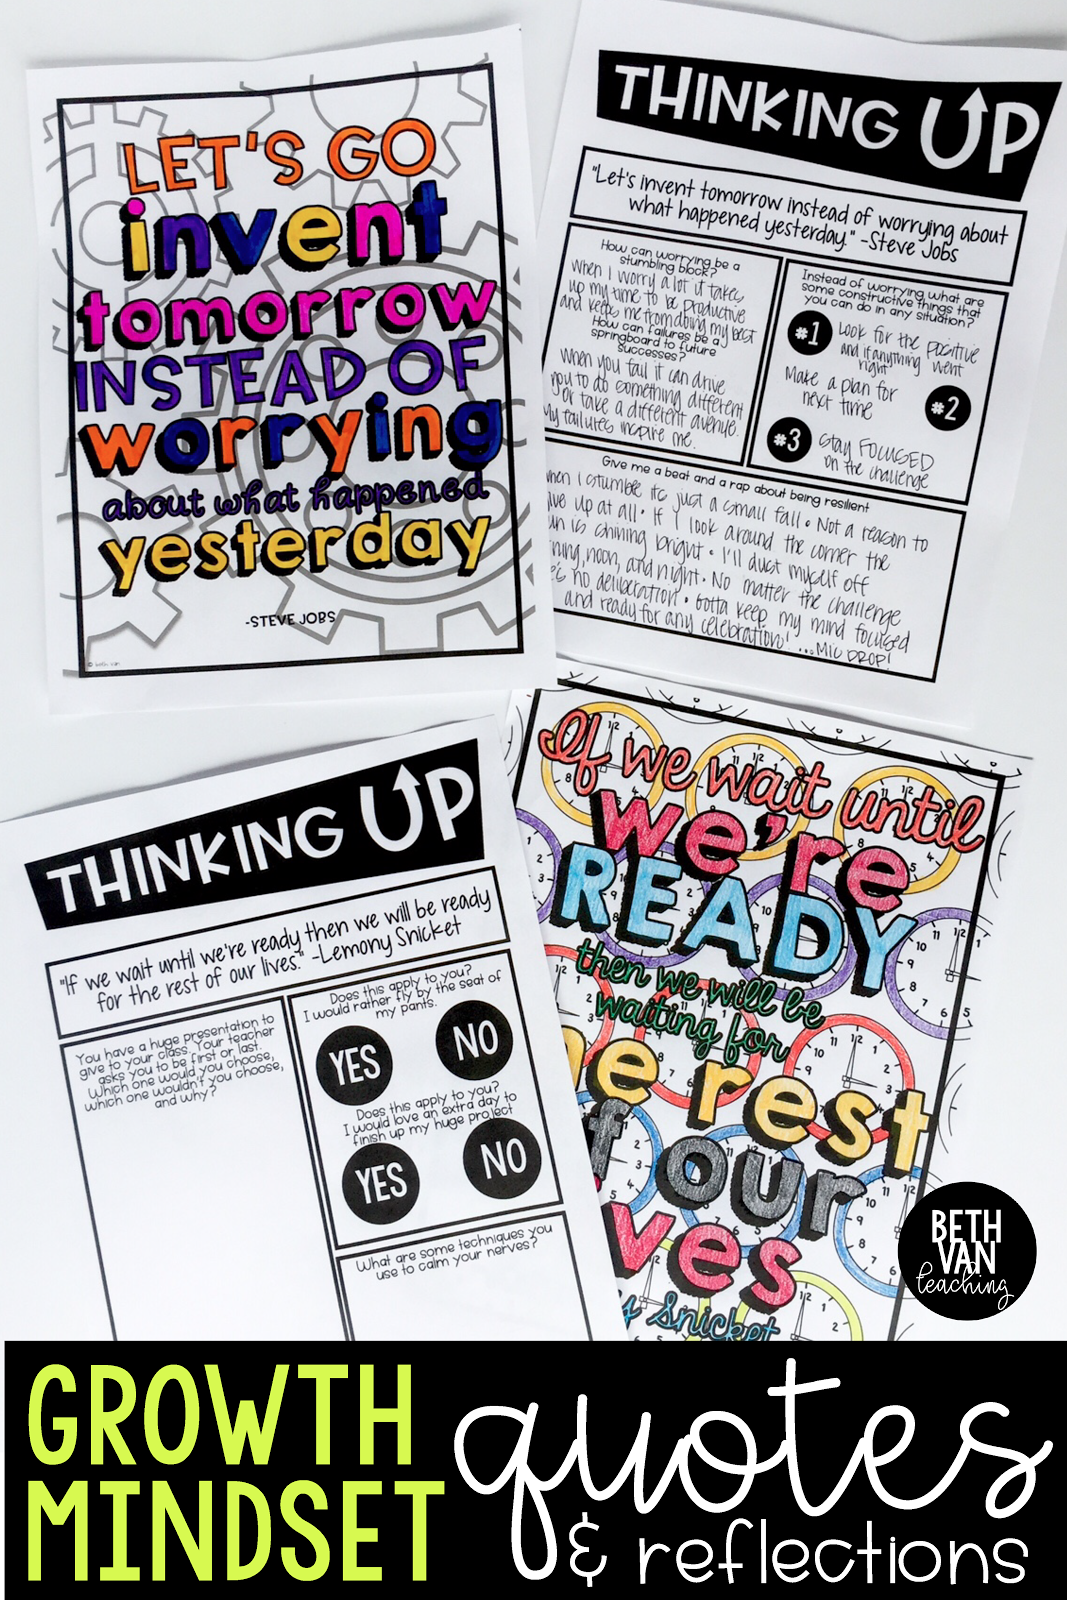 LET'S GO
invent
tomorrow
INSTEAD OF
worrying
about what happened
yesterday
-STEVE JOBS
© beth van
THINKING UP
"Let's invent tomorrow instead of worrying about
what happened yesterday." -Steve Jobs
How can worrying be a
stumbling block?
When I worry a lot it takes
up my time to be productive
and keeps me from doing my best
How can failures be a
springboard to future
successes?
When you fail it can drive
you to do something different
or take a different avenue.
My failures inspire me.
Instead of worrying, what are
some constructive things that
you can do in any situation?
#1 Look for the positive
and if anything went
right
Make a plan for
next time #2
#3 Stay FOCUSED
on the challenge
Give me a beat and a rap about being resilient
When I stumble its just a small fall • Not a reason to
up at all • If I look around the corner the
is shining bright • I'll dust myself off
noon, and night • No matter the challenge
no deliberation • Gotta keep my mind focused
and ready for any celebration! ...MIC DROP!
THINKING UP
"If we wait until we're ready then we will be ready
for the rest of our lives." -Lemony Snicket
You have a huge presentation to
give to your class. Your teacher
asks you to be first or last.
Which one would you choose,
which one wouldn't you choose,
and why?
Does this apply to you?
I would rather fly by the seat of
my pants.
YES NO
Does this apply to you?
I would love an extra day to
finish up my huge project
YES NO
What are some techniques you
use to calm your nerves?
If we wait until
we're
READY
then we will be
waiting for
e rest
f our
ves
y snicket
BETH
VAN
teaching
GROWTH
MINDSET
quotes
& reflections